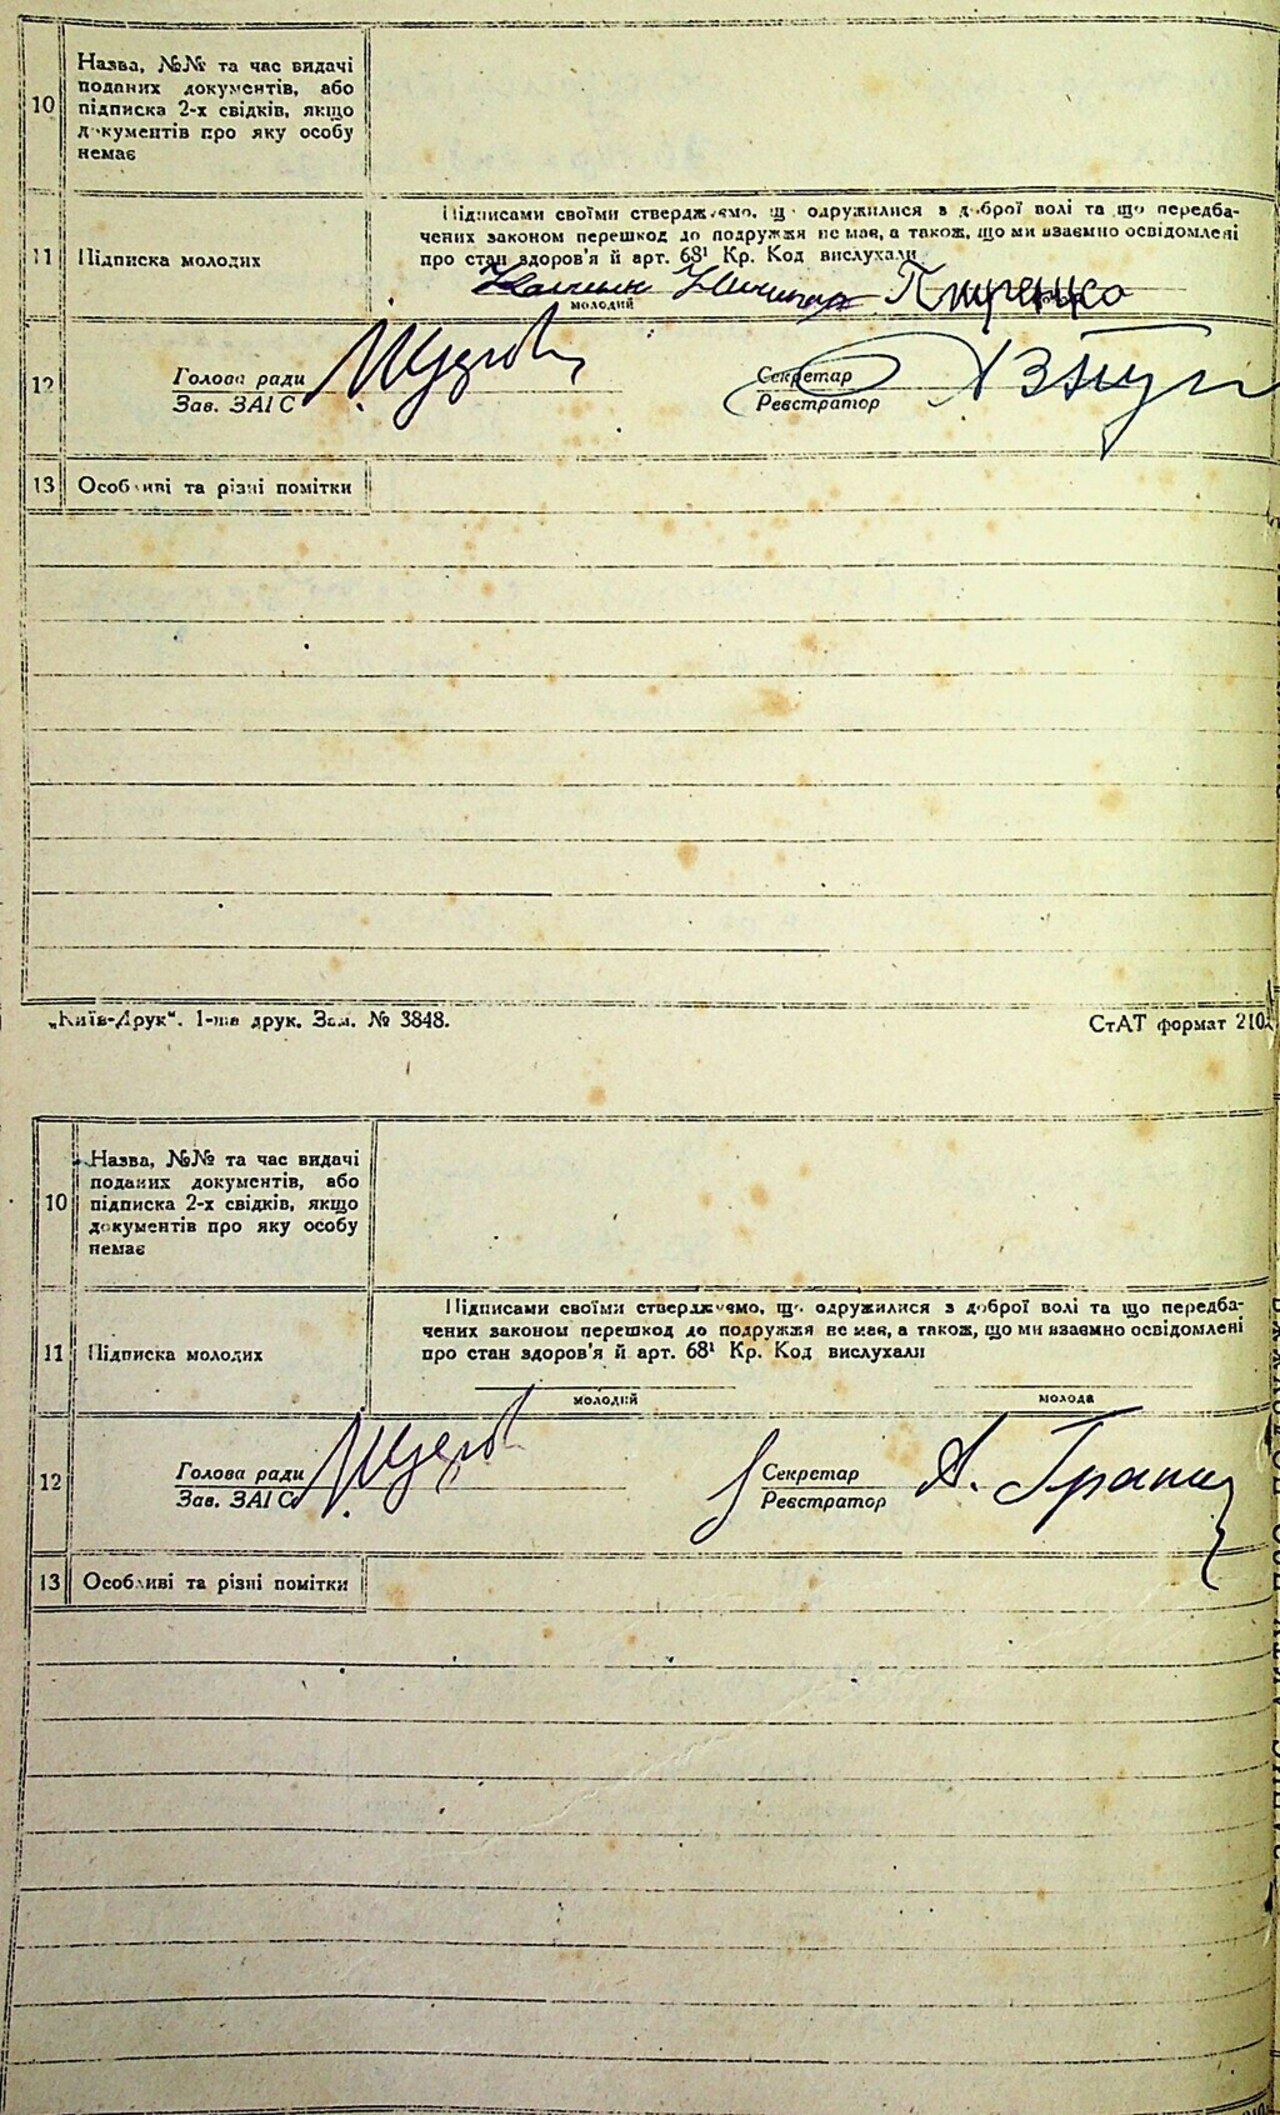 10
Назва, №№ та час видачі
поданих документів, або
підписка 2-х свідків, якщо
документів про яку особу
немає
11
Підписка молодих
Підписами своїми стверджуємо, що одружилися з доброї волі та що передба-
чених законом перешкод до подружжя не має, а також, що ми взаємно освідомлені
про стан здоров'я й арт. 68¹ Кр. Код вислухали
молодий
12
Голова ради
Зав. ЗАІС
Секретар
Реєстратор
13
Особливі та різні помітки
„Київ-Друк“. 1-ша друк. Зам. № 3848.
СтАТ формат 210
10
Назва, №№ та час видачі
поданих документів, або
підписка 2-х свідків, якщо
документів про яку особу
немає
11
Підписка молодих
Підписами своїми стверджуємо, що одружилися з доброї волі та що передба-
чених законом перешкод до подружжя не має, а також, що ми взаємно освідомлені
про стан здоров'я й арт. 68¹ Кр. Код вислухали
молодий
молода
12
Голова ради
Зав. ЗАІС
Секретар
Реєстратор
А.
13
Особливі та різні помітки